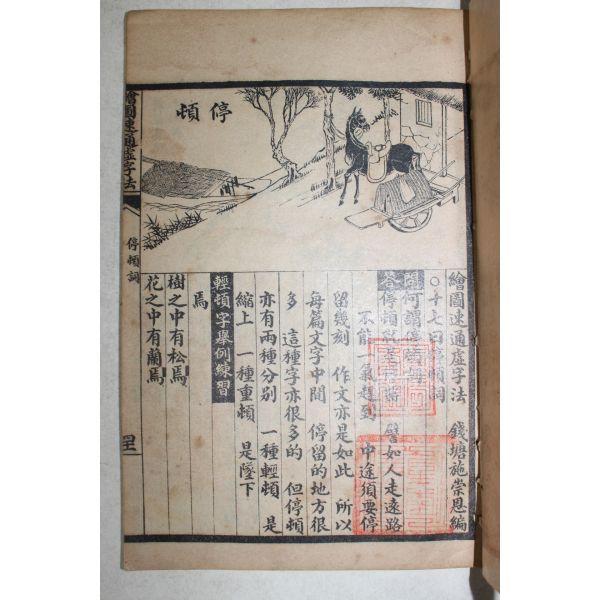 停頓
繪圖速通虛字法
停頓詞
繪圖速通虛字法 錢塘施崇恩編
○十七 四停頓詞
問何謂停頓
答停頓 譬如人走遠路
不能一氣趕到 中途須要停
留幾刻 作文亦是如此 所以
每篇文字中間 停留的地方很
多 這種字亦很多的 但停頓
亦有兩種分別 一種輕頓 是
縮上 一種重頓 是墜下
輕頓字舉例練習
焉
樹之中有松焉
花之中有蘭焉